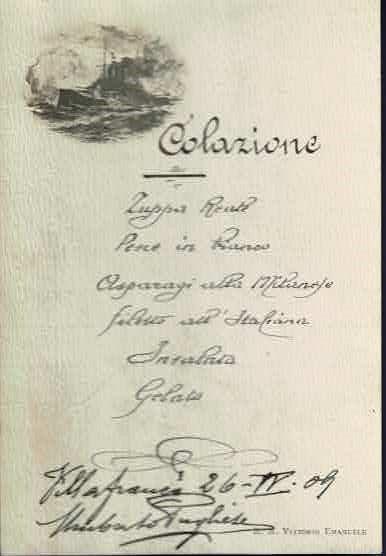 Colazione
Zuppa Reale
Pesce in bianco
Asparagi alla Milanese
filetto all'Italiana
Insalata
Gelato
Villafranca 26-IV.09
Umberto Pugliese
R. N. Vittorio Emanuele